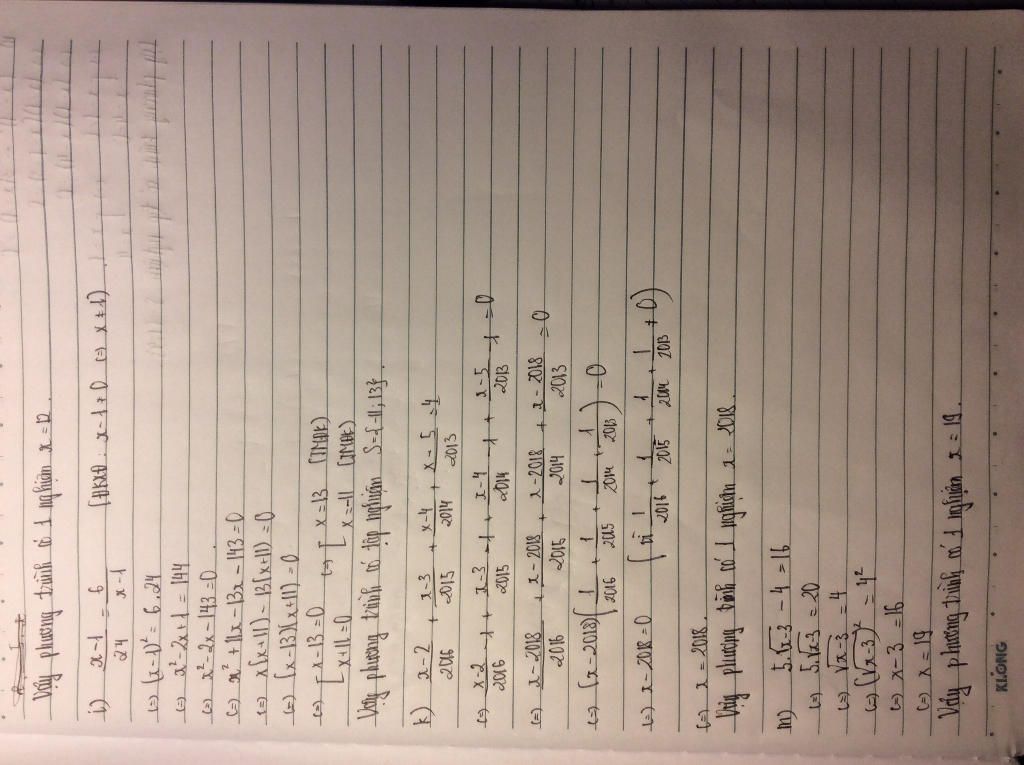 Vậy phương trình có 1 nghiệm x = 12.
i) x-1/24 = 6/x-1 (ĐKXĐ: x-1 ≠ 0 (=) x ≠ 1)
(=) (x-1)² = 6.24
(=) x² - 2x + 1 = 144
(=) x² - 2x - 143 = 0.
(=) x² + 11x - 13x - 143 = 0
(=) x(x+11) - 13(x+11) = 0
(=) (x-13)(x+11) = 0
(=) [ x-13 = 0 (=) [ x = 13 (TMĐK)
x+11 = 0 x = -11 (TMĐK)
Vậy phương trình có tập nghiệm S = {-11; 13}.
k) x-2/2016 + x-3/2015 + x-4/2014 + x-5/2013 = 4
(=) x-2/2016 - 1 + x-3/2015 - 1 + x-4/2014 - 1 + x-5/2013 - 1 = 0
(=) x-2018/2016 + x-2018/2015 + x-2018/2014 + x-2018/2013 = 0
(=) (x-2018)(1/2016 + 1/2015 + 1/2014 + 1/2013) = 0
(=) x-2018 = 0 (vì 1/2016 + 1/2015 + 1/2014 + 1/2013 ≠ 0)
(=) x = 2018.
Vậy phương trình có 1 nghiệm x = 2018.
m) 5.√x-3 - 4 = 16
(=) 5.√x-3 = 20
(=) √x-3 = 4
(=) (√x-3)² = 4²
(=) x - 3 = 16
(=) x = 19
Vậy phương trình có 1 nghiệm x = 19.
KLONG